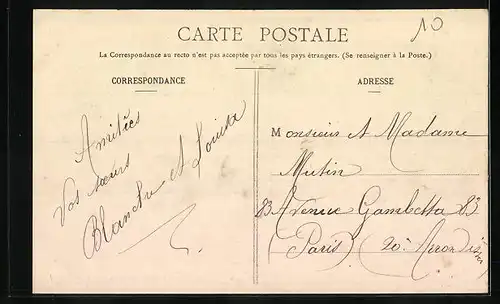 CARTE POSTALE
10
La Correspondance au recto n'est pas acceptée par tous les pays étrangers. (Se renseigner à la Poste.)
CORRESPONDANCE
Amitiés
Vos sœurs
Blanche et Louisa
ADRESSE
Monsieur et Madame
Mutin
83 Avenue Gambetta 83
(Paris) (20e Arrondis